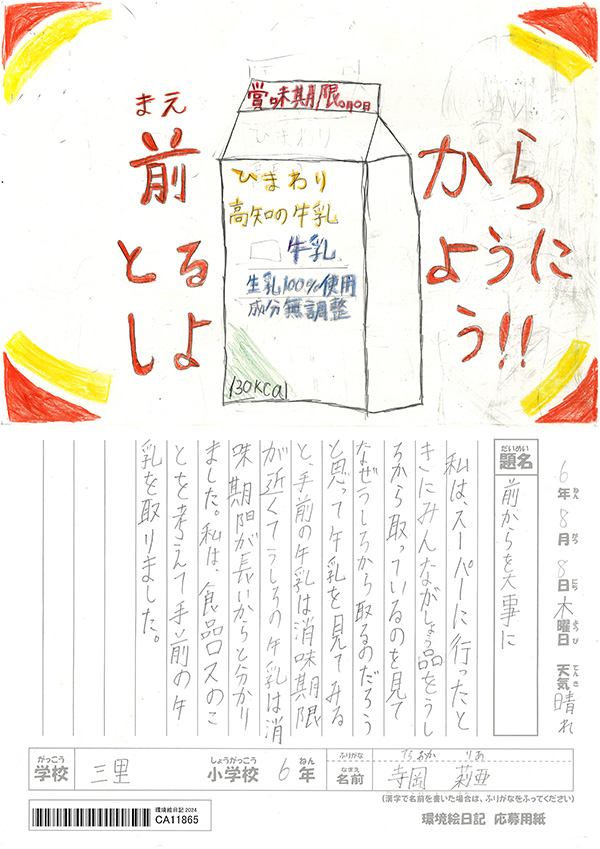 まえ
前から
とるように
しよう!!
賞味期限〇月〇日
ひまわり
ひまわり
高知の牛乳
牛乳
生乳100%使用
成分無調整
130Kcal
6年ねん8月がつ8日にち木曜日ようび 天気てんき晴れ
だいめい
題名
前からを大事に
私は、スーパーに行ったと
きにみんながしょう品をうし
ろから取っているのを見て
なぜうしろから取るのだろう
と思って牛乳を見てみる
と、手前の牛乳は消味期限
が近くてうしろの牛乳は消
味期限が長いからと分かり
ました。私は、食品ロスのこ
とを考えて手前の牛
乳を取りました。
がっこう しょうがっこう ねん
学校 三里 小学校 6年
ふりがな てらおか りあ
なまえ
名前 寺岡 莉亜
(漢字で名前を書いた場合は、ふりがなをふってください)
環境絵日記2024
CA11865
環境絵日記 応募用紙